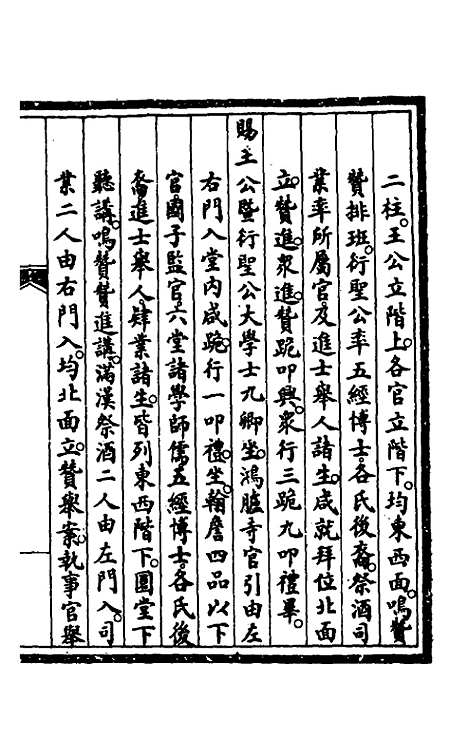 二柱。王公立階上。各官立階下。均東西面。鳴贊
贊排班。衍聖公率五經博士。各氏後裔。祭酒司
業率所屬官。及進士舉人諸生。咸就拜位北面
立。贊進。衆進。贊跪叩興。衆行三跪九叩禮畢。
賜王公暨衍聖公大學士九卿坐。鴻臚寺官引由左
右門入堂內咸跪。行一叩禮。坐。翰詹四品以下
官國子監官。六堂諸學師儒。五經博士。各氏後
裔進士舉人。肄業諸生。皆列東西階下。圜堂下
聽講。鳴贊贊進講。滿漢祭酒二人由左門入。司
業二人由右門入。均北面立。贊舉案。執事官舉